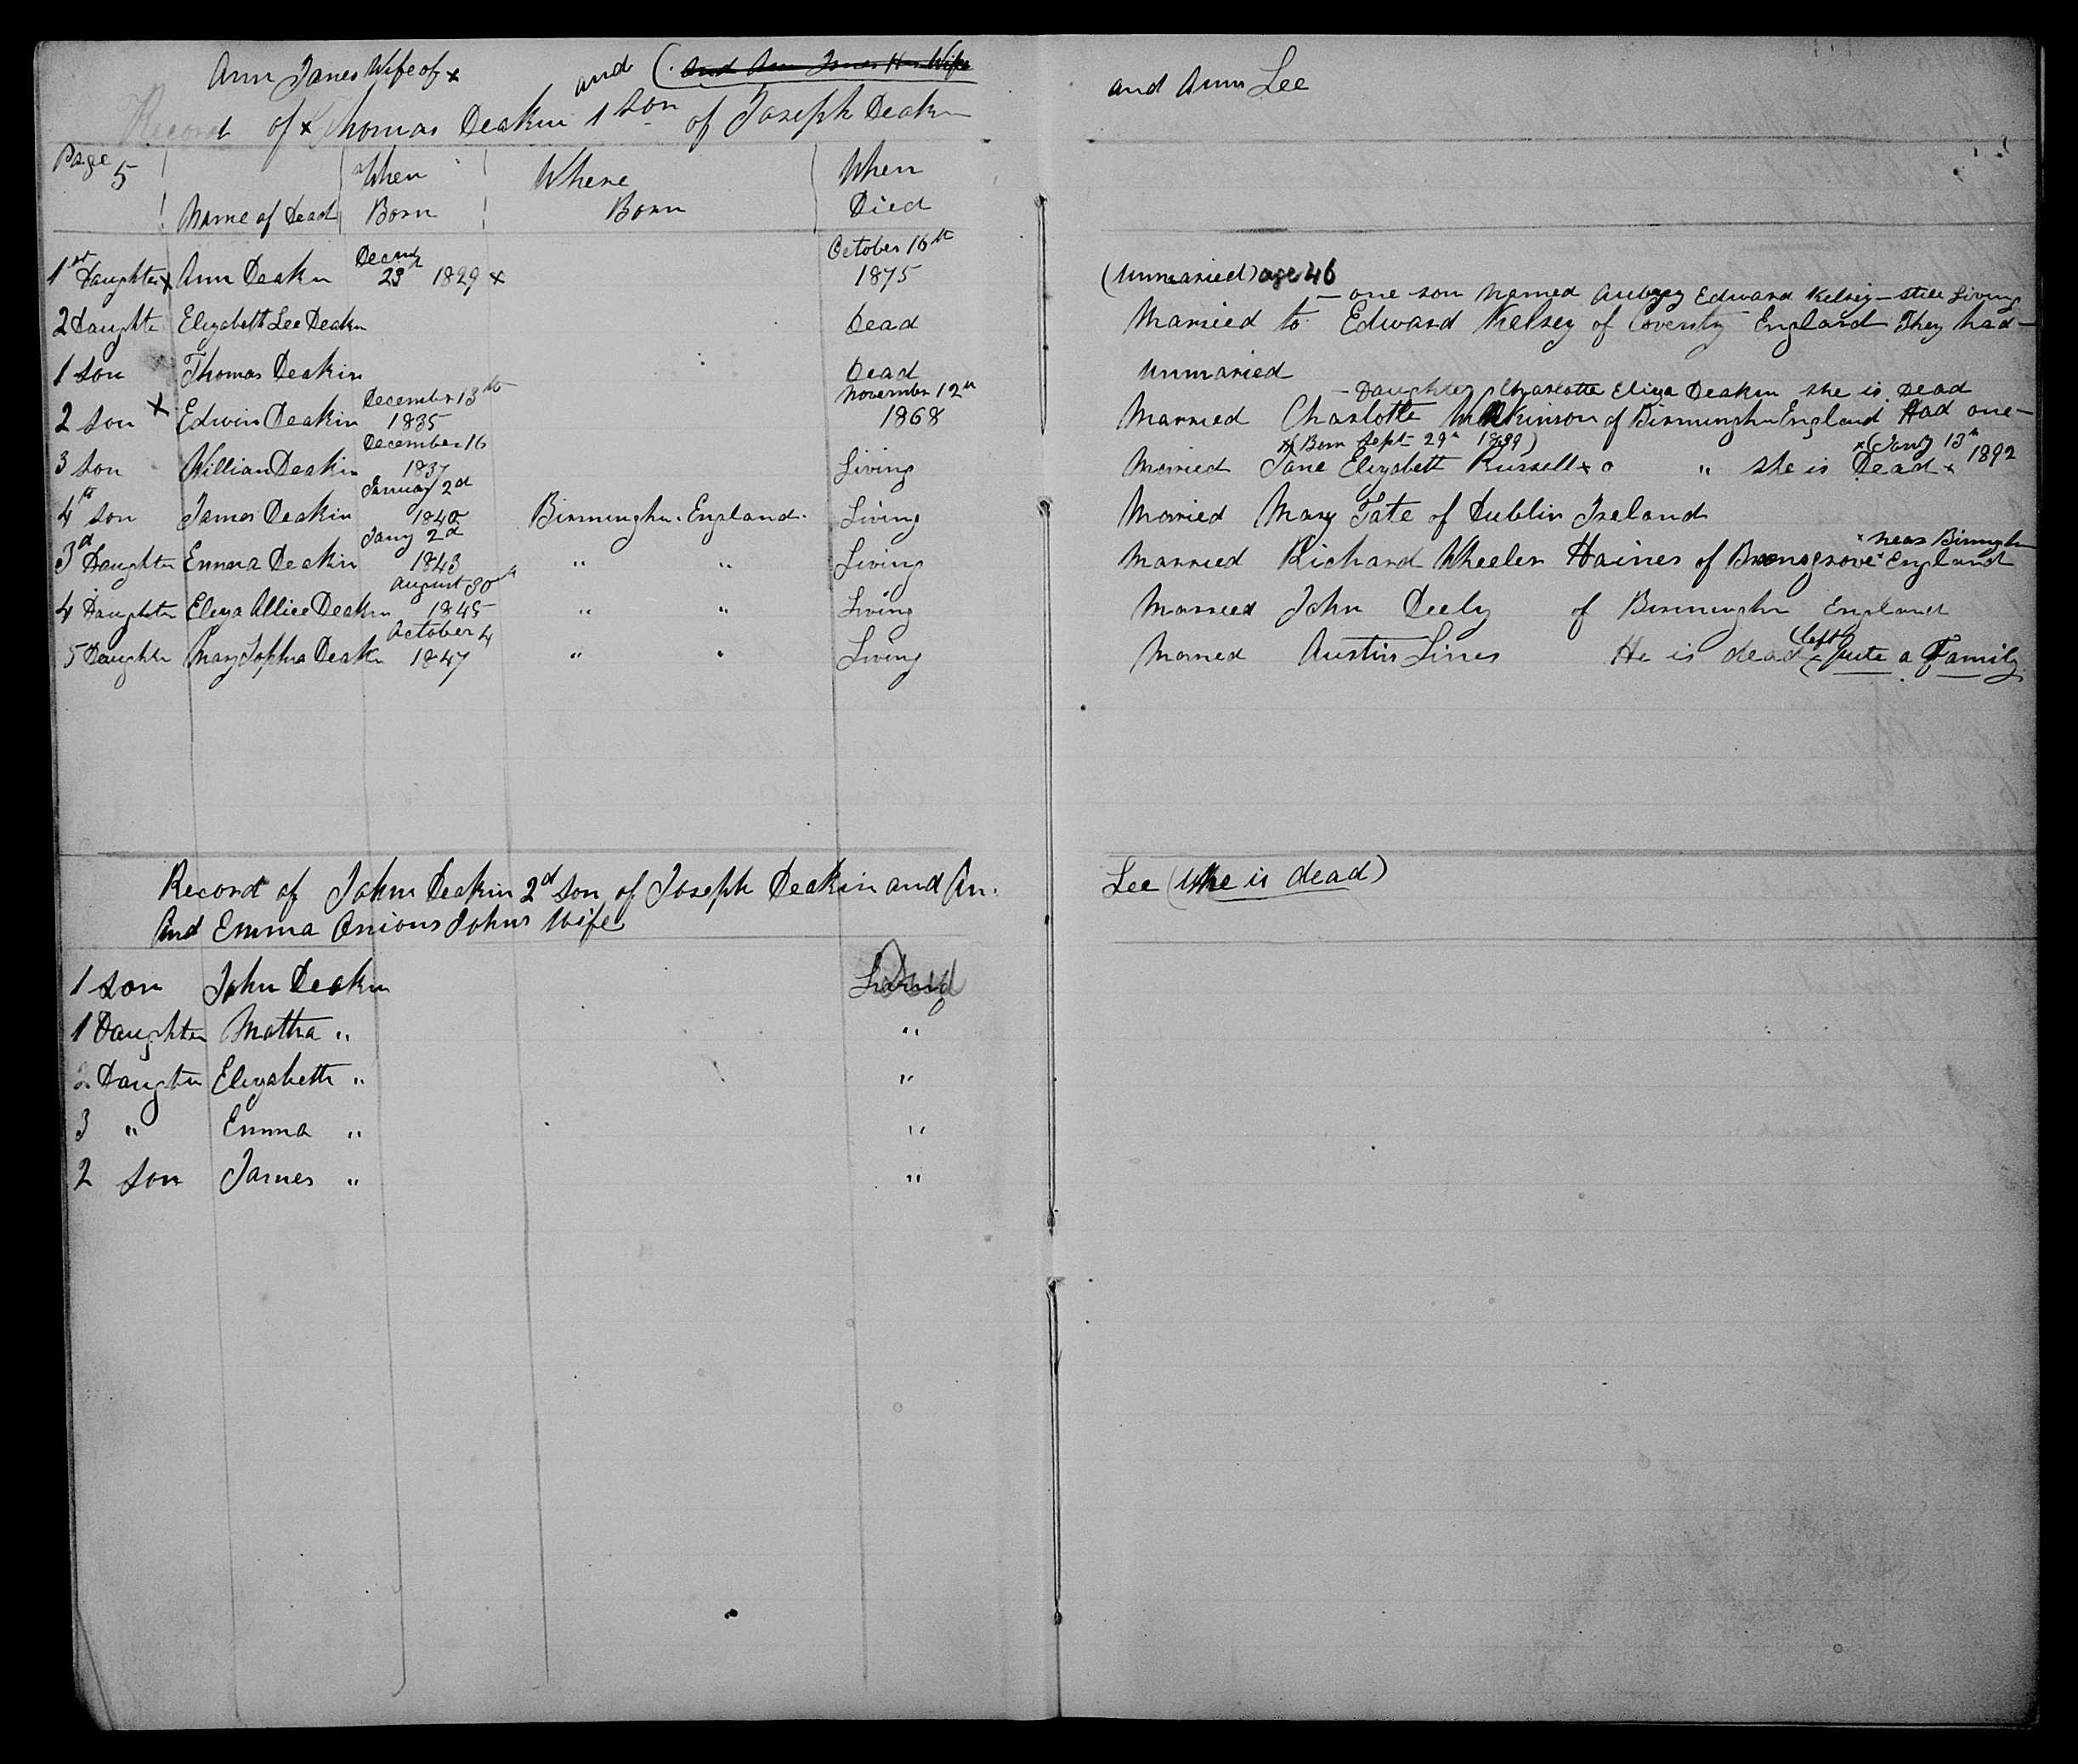 Ann Janes Wife of x and (. and Ann Janes His Wife
and Ann Lee
Record of x Thomas Deakin 1 son of Joseph Deakin
Page 5 When Where When
Name of Dead Born Born Died
Decem October 16th
1st Daughter x Ann Deakin 23 1829 x 1875 (Unmaried) age 46
— one son Named Aubrey Edward Kelsey — still Living
2 Daughte Elizabeth Lee Deakin Dead Married to Edward Kelsey of Coventry England They had —
1 son Thomas Deakin Dead Unmaried
December 13th November 12th — Daughter Charlotte Eliza Deakin she is Dead
2 son x Edwin Deakin 1835 1868 Married Charlotte of Birmingham England Had one —
December 16 x (Born Sept 29th 1839) x (Jany 13th
3 son William Deakin 1837 Living Married Jane Elizabeth Russell x o " she is Dead x 1892
January 2d
4th son James Deakin 1840 Birmingha. England. Living Married Mary Tate of Dublin Ireland
Jany 2d x near Birmingh
3d Daughter Emma Deakin 1843 " " Living Married Richard Wheeler Haines of Bromsgrove x England
August 30th
4 Daughter Eliza Allice Deakin 1845 " " Living Married John Deely of Birmingha England
October 4 (left
5 Daughter Mary Sophia Deakin 1847 " " Living Married Austin Lines He is dead ( Quite a Family
Record of John Deakin 2d son of Joseph Deakin and An. Lee (She is dead)
And Emma Onions Johns Wife
1 son John Deakin Living
1 Daughter Matha " "
2 Daughter Elizabeth " "
3 " Emma " "
2 son James " "